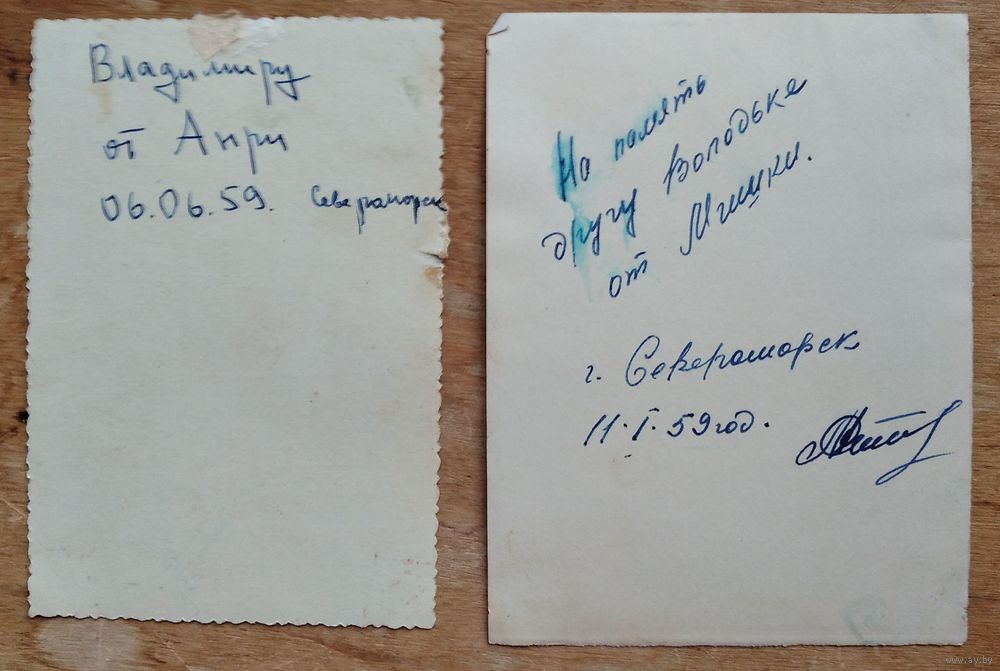 Владимиру
от Анри
06.06.59. Североморск
На память
другу Володьке
от Мишки.
г. Североморск
11.I.59 год.
www.ay.by